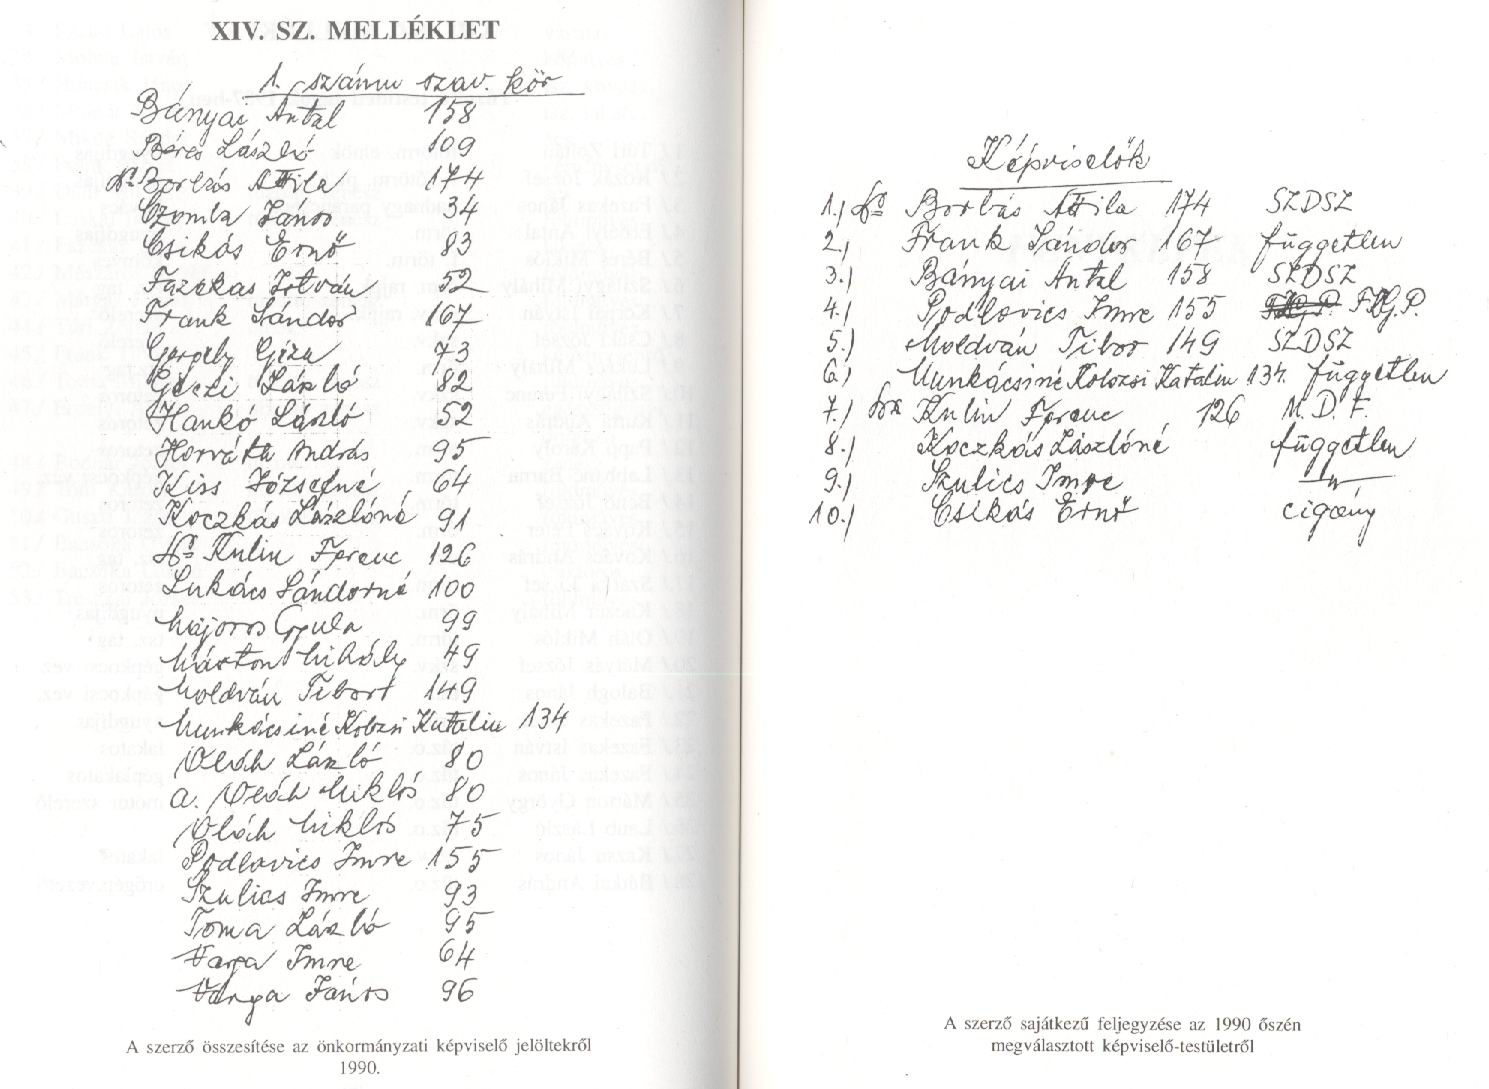 XIV. SZ. MELLÉKLET
1. számu szav. kör
Bányai Antal 158
Béres László 109
dr Borbás Attila 174
Czomba János 34
Csikós Ernő 83
Fazekas István 52
Frank Sándor 167
Gergely Géza 73
Géczi László 82
Hankó László 52
Horváth András 95
Kiss Józsefné 64
Koczkás Lászlóné 91
dr Kulin Ferenc 126
Lukács Sándorné 100
Májoros Gyula 99
Márton Mihály 49
Moldván Tibort 149
Munkácsiné Kolozsi Katalin 134
Oláh László 80
a. Oláh Miklós 80
Oláh Miklós 75
Podlovics Imre 155
Szulics Imre 93
Toma László 95
Varga Imre 64
Varga János 96
A szerző összesítése az önkormányzati képviselő jelöltekről
1990.
Képviselők
1.) dr Borbás Attila 174 SZDSZ
2.) Frank Sándor 167 független
3.) Bányai Antal 158 SZDSZ
4.) Podlovics Imre 155 F.K.G.P.
5.) Moldván Tibor 149 SZDSZ
6.) Munkácsiné Kolozsi Katalin 134. független
7.) dr Kulin Ferenc 126 M.D.F.
8.) Koczkás Lászlóné független
9.) Szulics Imre —"—
10.) Csikós Ernő cigány
A szerző sajátkezű feljegyzése az 1990 őszén
megválasztott képviselő-testületről